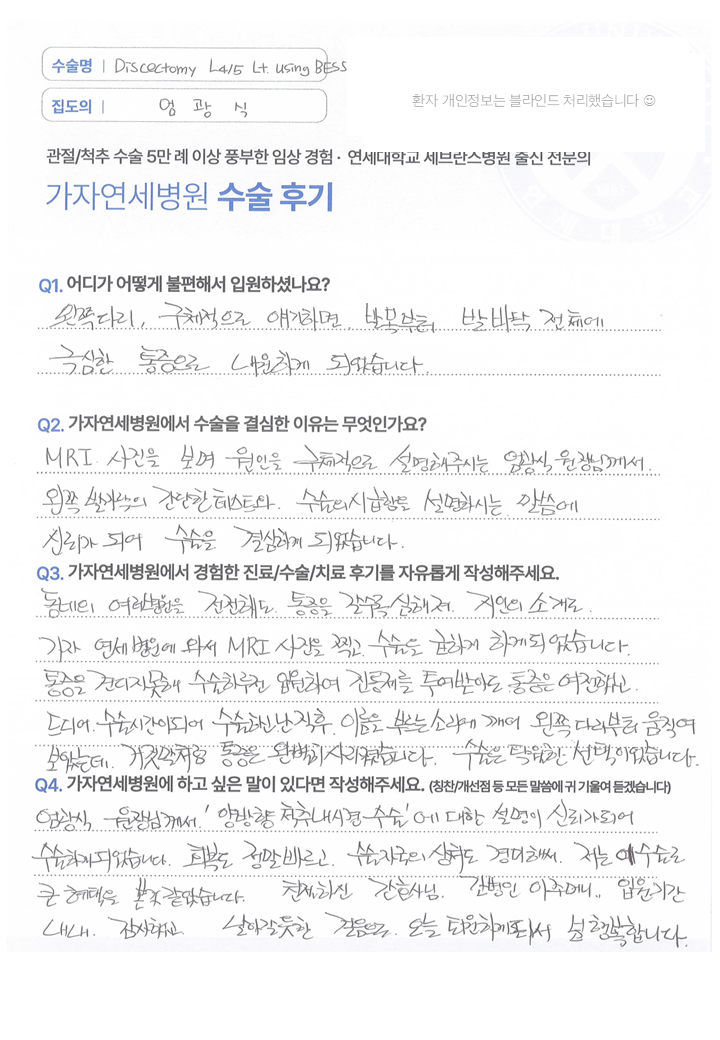 수술명 | Discectomy L4/5 Lt. using BESS
집도의 | 엄 광 식
환자 개인정보는 블라인드 처리했습니다 ☺
관절/척추 수술 5만 례 이상 풍부한 임상 경험 · 연세대학교 세브란스병원 출신 전문의
가자연세병원 수술 후기
Q1. 어디가 어떻게 불편해서 입원하셨나요?
왼쪽다리, 구체적으로 얘기하면, 발목부터 발바닥 전체에
극심한 통증으로 내원하게 되었습니다.
Q2. 가자연세병원에서 수술을 결심한 이유는 무엇인가요?
MRI 사진을 보며 원인을 구체적으로 설명해주시는 엄광식 원장님께서.
왼쪽 발가락의 간단한 테스트와. 수술의 시급함을 설명하시는 말씀에
신뢰가 되어 수술을 결심하게 되었습니다.
Q3. 가자연세병원에서 경험한 진료/수술/치료 후기를 자유롭게 작성해주세요.
동네의 여러병원을 전전해도. 통증은 갈수록 심해져. 지인의 소개로.
가자 연세병원에 와서 MRI 사진을 찍고. 수술을 급하게 하게되었습니다.
통증을 견디지못해 수술하루전 입원하여 진통제를 투여받아도 통증은 여전하고.
드디어. 수술시간이되어 수술하고난직후. 이름을 부르는소리에 깨어 왼쪽 다리부터 움직여
보았는데. 거짓말처럼 통증은 완벽히사라졌습니다. 수술은 탁월한 선택이었습니다.
Q4. 가자연세병원에 하고 싶은 말이 있다면 작성해주세요. (칭찬/개선점 등 모든 말씀에 귀 기울여 듣겠습니다)
엄광식 원장님께서. '양방향 척추내시경 수술'에 대한 설명이 신뢰가되어
수술하게되었습니다. 회복도 정말빠르고. 수술자국의 상처도 경미해서. 저는 이수술로
큰 혜택을 본것같았습니다. 친절하신 간호사님. 간병인 아주머니.. 입원기간
내내. 감사하고 날아갈듯한 걸음으로. 오늘 퇴원하게되서 넘 행복합니다.